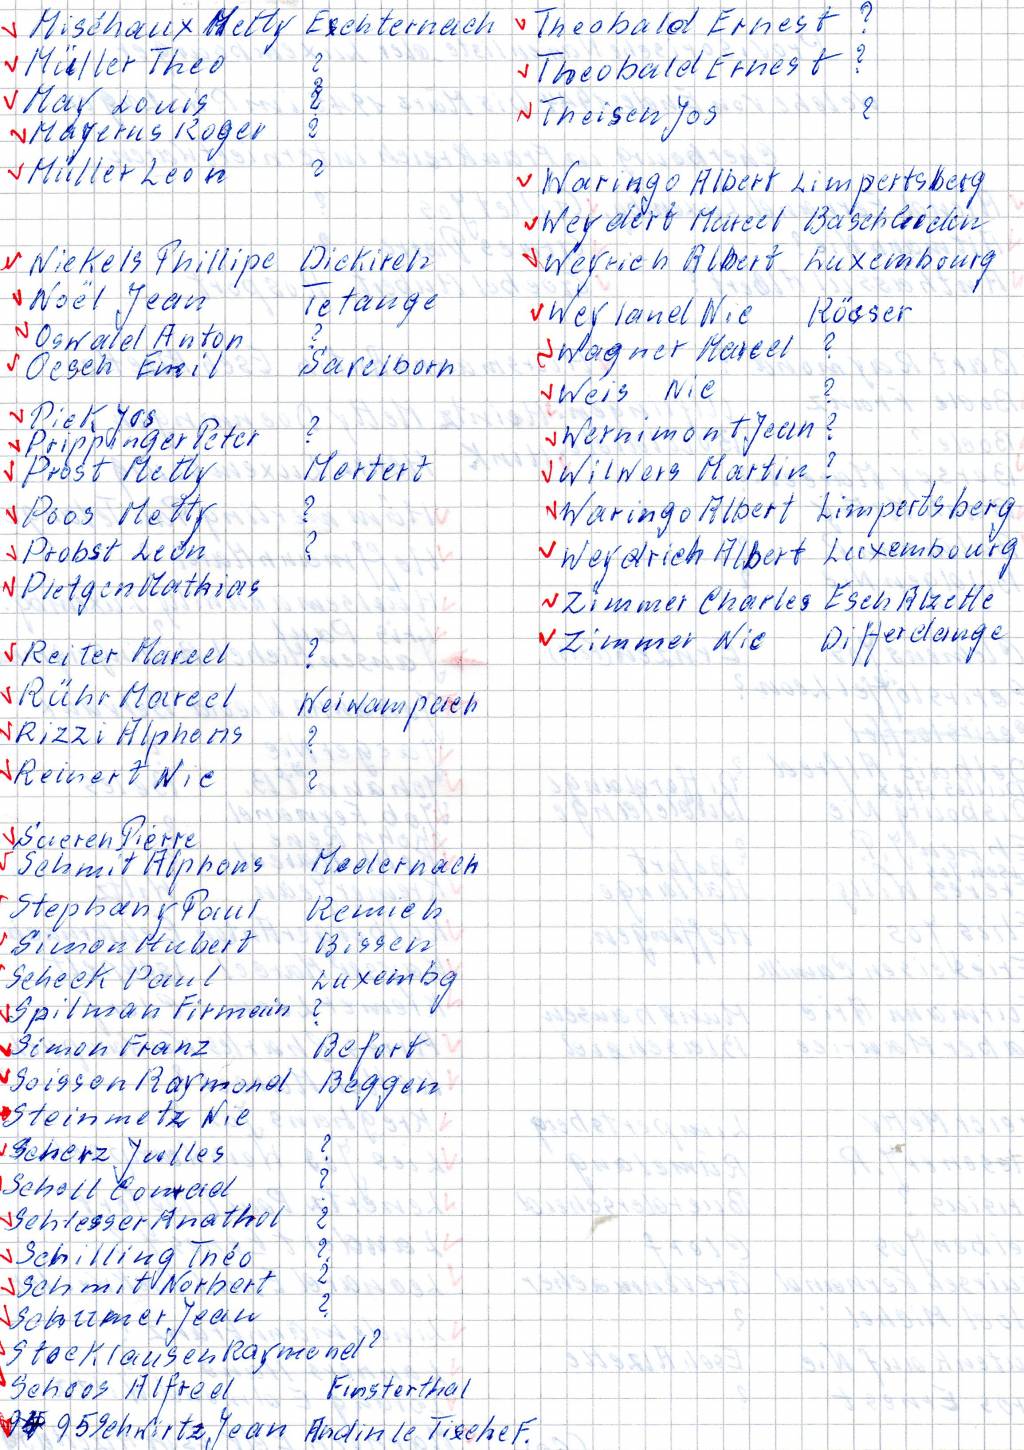 Mischaux Metty Eschternach
Müller Theo ?
May Louis ?
Mayerus Roger ?
Müller Leon ?
Niekels Phillipe Diekirch
Noël Jean Tetange
Oswald Anton ?
Oesch Emil Savelborn
Piek Jos
Prippinger Peter ?
Prost Metty Mertert
Poos Metty ?
Probst Leon ?
Pletgen Mathias
Reiter Marcel ?
Rühr Marcel Weiwampach
Rizzi Alphons ?
Reinert Nic ?
Sueren Pierre
Schmit Alphons Medernach
Stephany Paul Remich
Simon Hubert Bissen
Scheek Paul Luxembg
Spilman Firmain ?
Simon Franz Befort
Soisson Raymond Beggen
Steinmetz Nic
Scherz Julles ?
Scholl Conrad ?
Schlesser Anathol ?
Schilling Théo ?
Schmit Norbert ?
Schumer Jean ?
Stocklausen Raymond ?
Schoos Alfred Finsterthal
95 Schwirtz Jean
Theobald Ernest ?
Theobald Ernest ?
Theisen Jos ?
Waringo Albert Limpertsberg
Weydert Marcel Baschleiden
Weyrich Albert Luxembourg
Weyland Nic Röser
Wagner Marcel ?
Weis Nic ?
Wernimont Jean ?
Wilwers Martin ?
Waringo Albert Limpertsberg
Weydrich Albert Luxembourg
Zimmer Charles Esch Alzette
Zimmer Nic Differdange